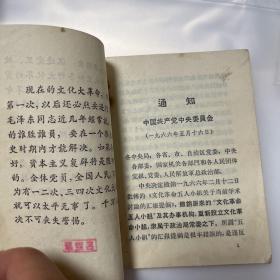 现在的文化大革命,
第一次,以后还必然要进
毛泽东同志近几年经常
的谁胜谁负,要在一个
史时期内才能解决。
好,资本主义复辟将是随
的。全体党员,全国人民,
为有一二次、三四次文化
可以太平无事了。千
次不可丧失警惕。
通知
中国共产党中央委员会
(一九六六年五月十六日)
各中央局,各省、市、自治区党委,中央
各部委,国家机关各部门和各人民团体
党组、党委,人民解放军总政治部:
中央决定撤销一九六六年二月十二日
批转的《文化革命五人小组关于当前学术
讨论的汇报提纲》,撤销原来的“文化革命
五人小组”及其办事机构,重新设立文化革
命小组,隶属于政治局常委之下。所谓“五
人小组”的汇报提纲是根本错误的,是违反
1